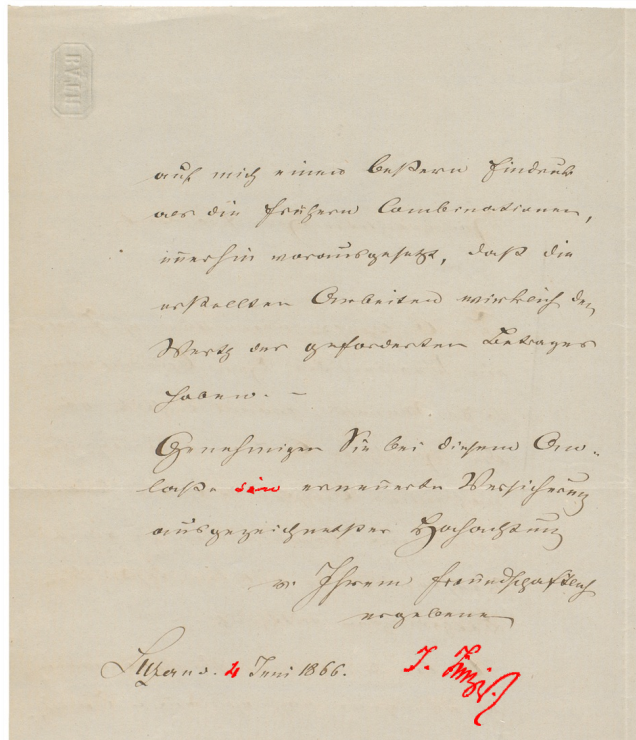 BATH
auf mich einen beßern Eindruck
als die frühern Combinationen,
immerhin vorausgesetzt, daß die
erstellten Arbeiten wirklich den
Werth des geforderten Betrages
haben. –
Genehmigen Sie bei diesem An-
laße die erneuerte Versicherung
ausgezeichnetster Hochachtung
v. Ihrem freundschaftlich
ergebenen
4 Juni 1866. J.